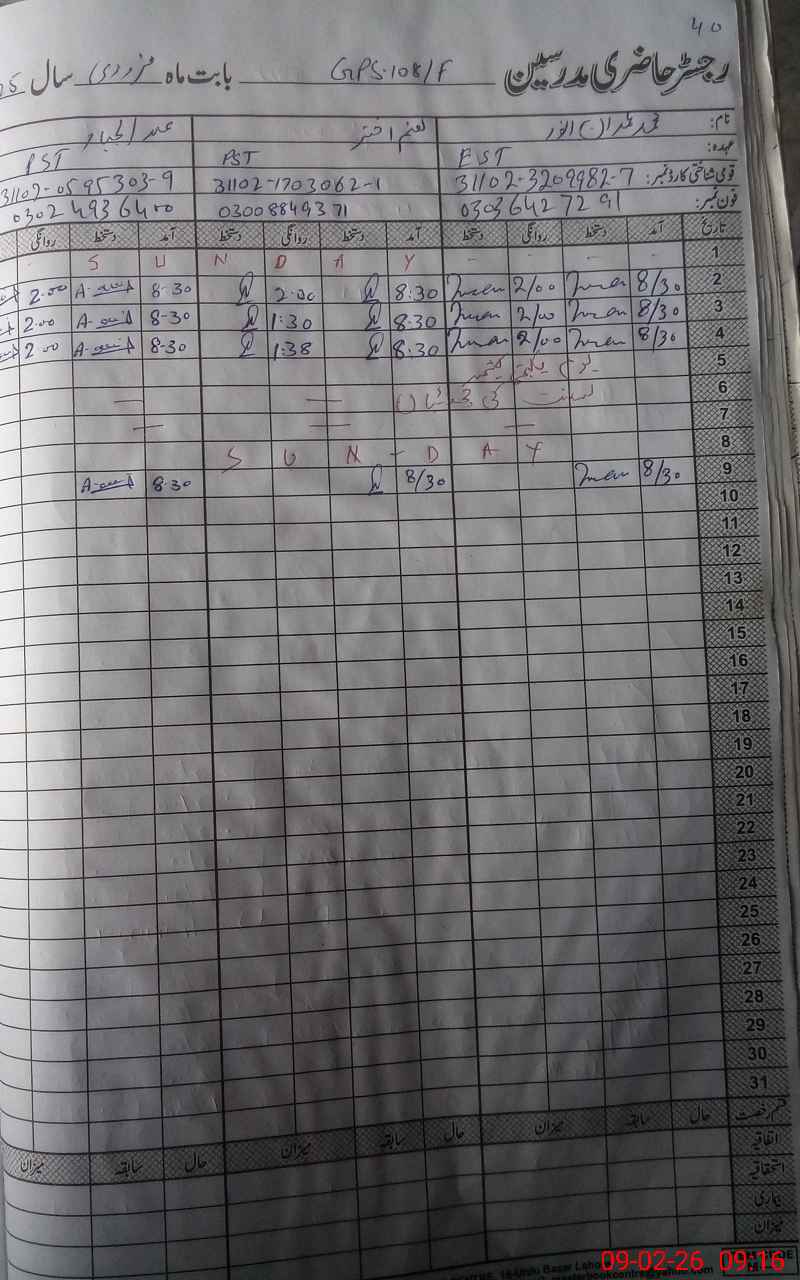 40
رجسٹر حاضری مدرسین GPS.108/F بابت ماہ فروری سال
نام: نعیم اختر عبدالجبار
عہدہ: EST PST PST
قومی شناختی کارڈ نمبر: 31102-3209982-7 31102-1703062-1 31102-0595303-9
فون نمبر: 03036427291 03008849371 03024936400
تاریخ آمد دستخط روانگی دستخط آمد دستخط روانگی دستخط آمد دستخط روانگی
1 - - - - S U N D A Y
2 8/30 2/00 8:30 2:00 8-30 2.00
3 8/30 2/00 8:30 1:30 8-30 2.00
4 8/30 2/00 8:30 1:38 8-30 2.00
5 یوم یکجہتی کشمیر
6 بسنت کی چھٹیاں — —
7 — — —
8 S U N - D A Y
9 8/30 8/30 8.30
10
11
12
13
14
15
16
17
18
19
20
21
22
23
24
25
26
27
28
29
30
31
قسم رخصت حال سابقہ میزان حال سابقہ میزان حال سابقہ میزان
اتفاقیہ
استحقاقیہ
بیماری
میزان
Urdu Bazar Laho
09-02-26 09:16